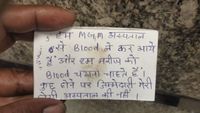 हम MGM अस्पताल
से Blood ले कर आये
हैं और हम मरीज को
Blood चढ़ाना चाहते हैं।
कुछ होने पर जिम्मेदारी मेरी
होगी अस्पताल की नहीं।